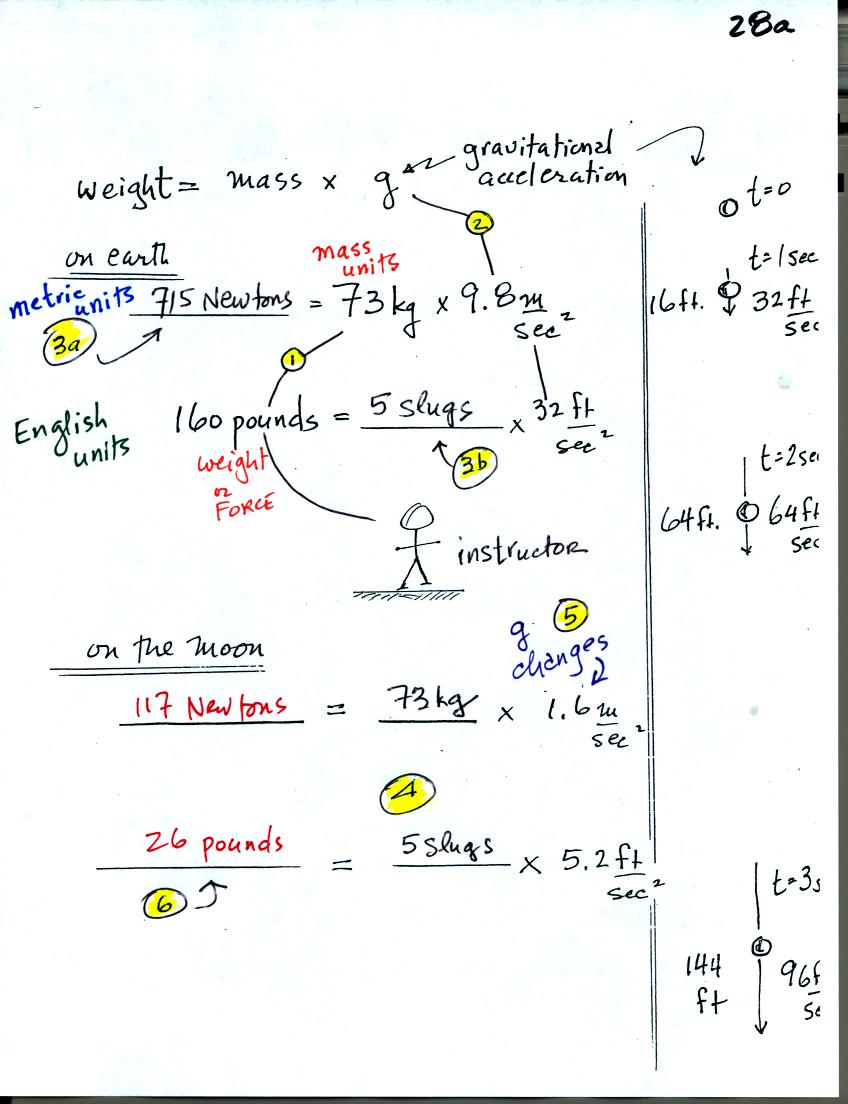 28a
gravitational
acceleration
weight = mass x g
on earth
mass
units
2
metric
units
715 Newtons = 73 kg x 9.8 m
sec 2
3a
1
English
units
160 pounds = 5 slugs x 32 ft
sec 2
weight
or
FORCE
3b
instructor
on the moon
g 5
changes
117 Newtons = 73 kg x 1.6 m
sec 2
4
26 pounds = 5 slugs x 5.2 ft
sec 2
6
t=0
t=1sec
16ft. 32 ft
sec
t=2sec
64ft. 64 ft
sec
t=3s
144
ft
96f
se